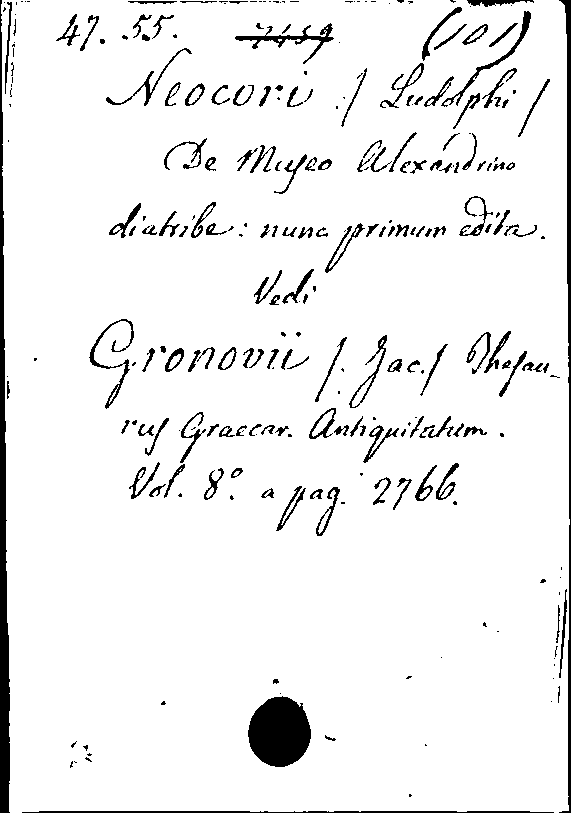 47. 55. 7459 (101)
Neocori / Ludolphi /
De Museo Alexandrino
diatribe: nunc primum edita.
Vedi
Gronovii /. Jac. / Thesau-
rus Graecar. Antiquitatum.
Vol. 8.° a pag. 2766.